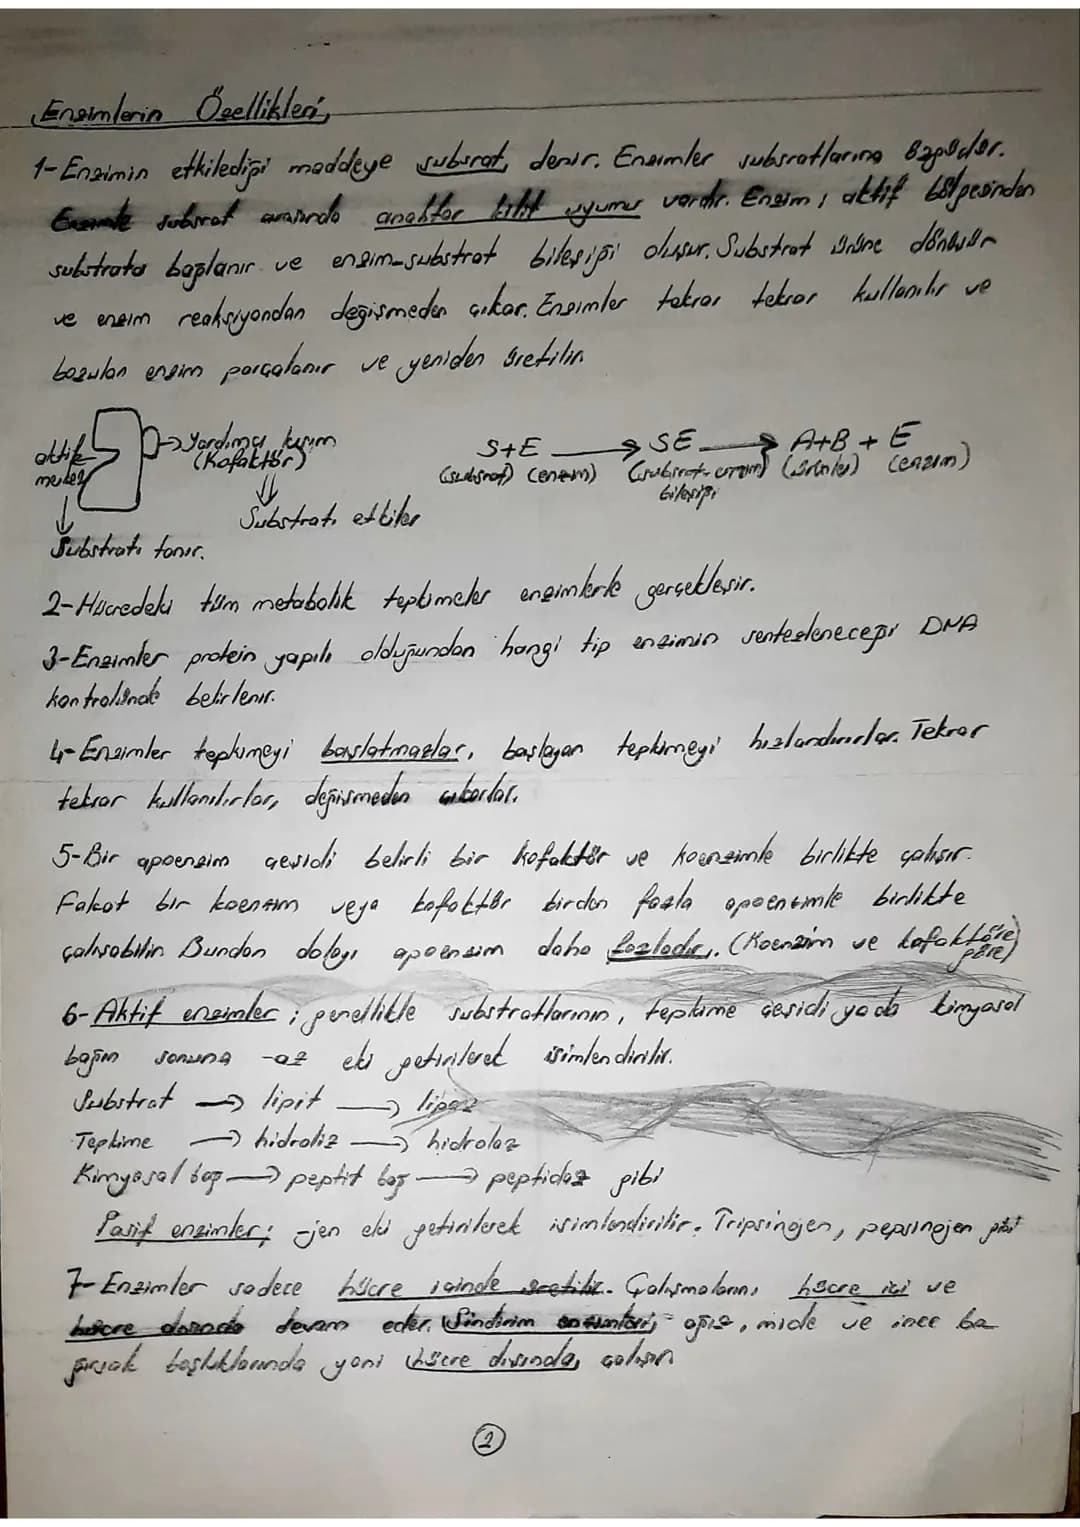 Enzimlerin Özellikleri
1-Enzimin etkilediği maddeye subsrat, denir. Enzimler subsratlarına özgüdür.
Enzimle subsrat arasında anahtar kilit uyumu vardır. Enzim; aktif bölgesinden
substrata bağlanır ve enzim-substrat bileşiği oluşur. Substrat ürüne dönüşür
ve enzim reaksiyondan değişmeden çıkar. Enzimler tekrar tekrar kullanılır ve
bozulan enzim parçalanır ve yeniden üretilir.
aktif merkez
→ Yardımcı kısım
(Kofaktör)
Substratı etkiler
Substratı tanır.
S+E → SE → A+B + E
(subsrat) (enzim) (subsrat-enzim bileşiği) (ürünler) (enzim)
2-Hücredeki tüm metabolik tepkimeler enzimlerle gerçekleşir.
3-Enzimler protein yapılı olduğundan hangi tip enzimin sentezleneceği DNA
kontrolünde belirlenir.
4-Enzimler tepkimeyi başlatmazlar, başlayan tepkimeyi hızlandırırlar. Tekrar
tekrar kullanılırlar, değişmeden çıkarlar.
5-Bir apoenzim çeşidi belirli bir kofaktör ve koenzimle birlikte çalışır.
Fakat bir koenzim veya kofaktör birden fazla apoenzimle birlikte
çalışabilir. Bundan dolayı apoenzim daha fazladır. (Koenzim ve kofaktöre göre)
6-Aktif enzimler; genellikle substratlarının, tepkime çeşidi ya da kimyasal
bağın sonuna -az eki getirilerek isimlendirilir.
Substrat → lipit → lipaz
Tepkime → hidroliz → hidrolaz
Kimyasal bağ → peptit bağ → peptidaz gibi
Pasif enzimler; -jen eki getirilerek isimlendirilir. Tripsinojen, pepsinojen gibi
7-Enzimler sadece hücre içinde üretilir. Çalışmalarını hücre içi ve
hücre dışında devam eder. Sindirim enzimleri; ağız, mide ve ince ba
ğırsak boşluklarında yani hücre dışında, çalışır
2